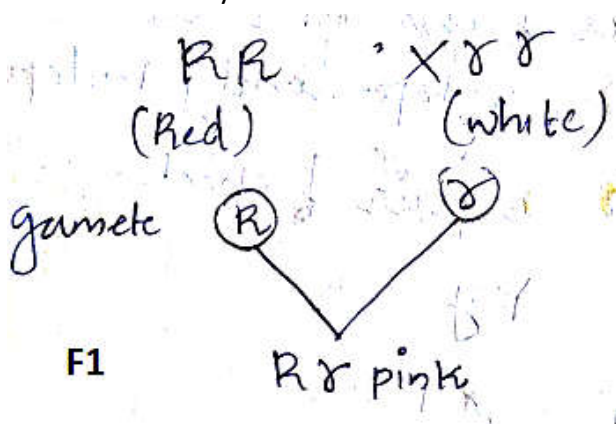 RR × rr
(Red) (white)
gamete R r
F1 Rr pink